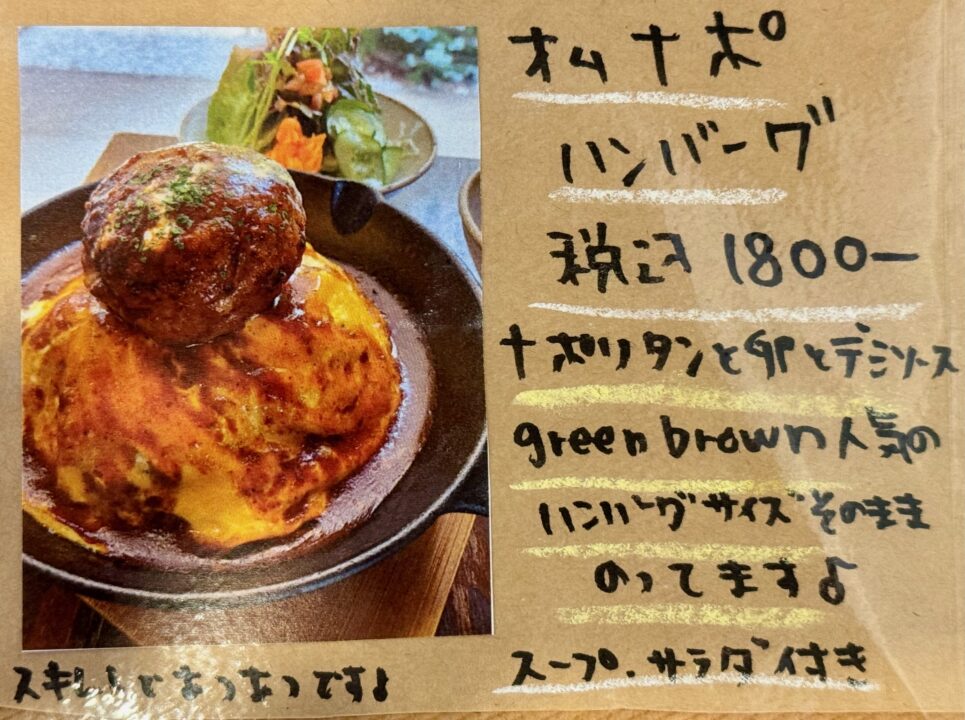 オムナポ
ハンバーグ
税込 1800ー
ナポリタンと卵とデミソース
green brown 人気の
ハンバーグサイズそのまま
のってます♪
スープ.サラダ付き
スキレットであつあつです♪